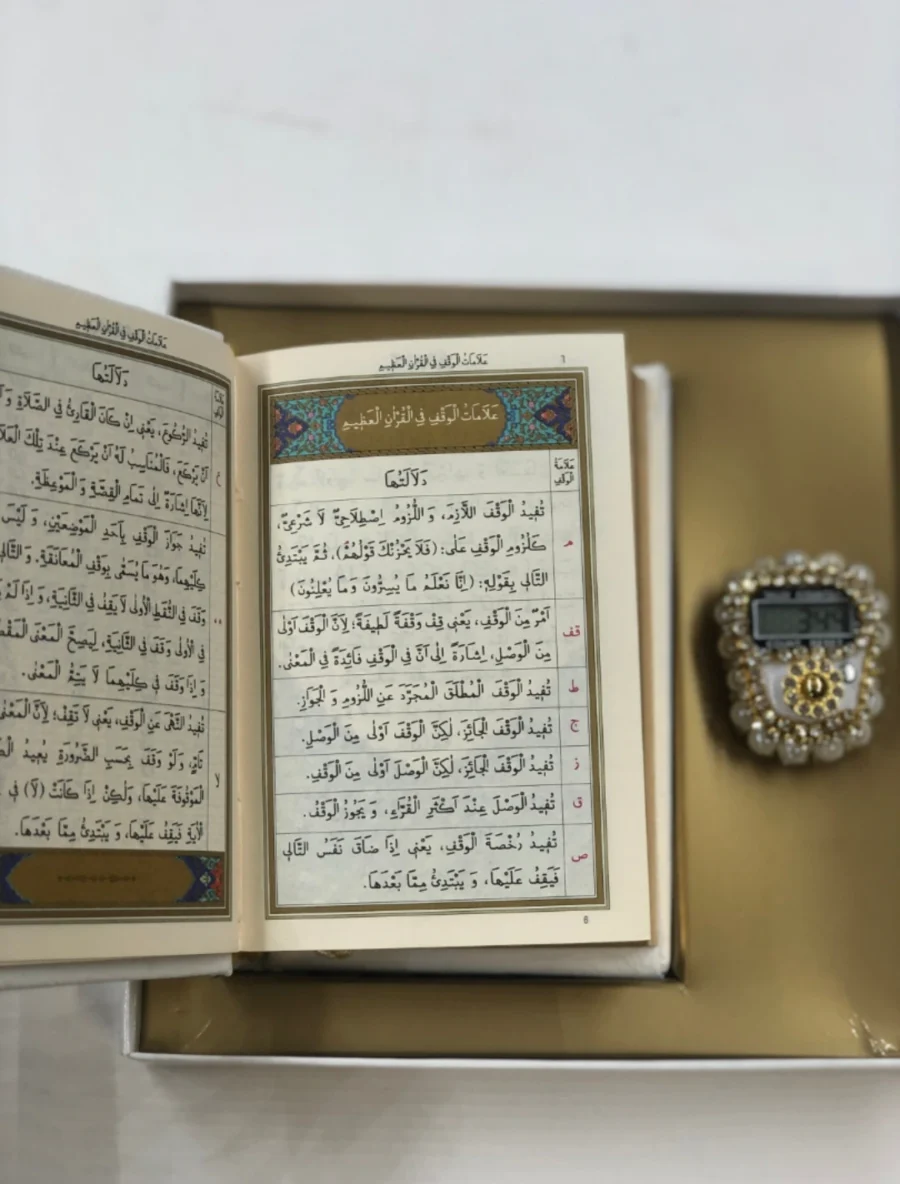 علامات الوقف في القرآن العظيم
٦
عَلَامَاتُ الْوَقْفِ فِي الْقُرْاٰنِ الْعَظِيمِ
عَلَامَةُ الْوَقْفِ
دَلَالَتُهَا
مـ
تُفِيدُ الْوَقْفَ اللَّازِمَ، وَ اللُّزُومُ اِصْطِلَاحِيٌّ لَا شَرْعِيٌّ،
كَلُزُومِ الْوَقْفِ عَلٰى: (فَلَا يَحْزُنْكَ قَوْلُهُمْ)، ثُمَّ يَبْتَدِئُ
التَّالِي بِقَوْلِهِ: (اِنَّا نَعْلَمُ مَا يُسِرُّونَ وَ مَا يُعْلِنُونَ)
قف
اَمْرٌ مِنَ الْوَقْفِ، يَعْنِي قِفْ وَقْفَةً لَطِيفَةً؛ لِاَنَّ الْوَقْفَ اَوْلٰى
مِنَ الْوَصْلِ، اِشَارَةً اِلٰى اَنَّ فِي الْوَقْفِ فَائِدَةً فِي الْمَعْنٰى.
ط
تُفِيدُ الْوَقْفَ الْمُطْلَقَ الْمُجَرَّدَ عَنِ اللُّزُومِ وَ الْجَوَازِ.
ج
تُفِيدُ الْوَقْفَ الْجَائِزَ، لٰكِنَّ الْوَقْفَ اَوْلٰى مِنَ الْوَصْلِ.
ز
تُفِيدُ الْوَقْفَ الْجَائِزَ، لٰكِنَّ الْوَصْلَ اَوْلٰى مِنَ الْوَقْفِ.
ق
تُفِيدُ الْوَصْلَ عِنْدَ اَكْثَرِ الْقُرَّاءِ، وَ يَجُوزُ الْوَقْفُ.
ص
تُفِيدُ رُخْصَةَ الْوَقْفِ، يَعْنِي اِذَا ضَاقَ نَفَسُ التَّالِي
فَيَقِفُ عَلَيْهَا، وَ يَبْتَدِئُ مِمَّا بَعْدَهَا.
6
علامات الوقف في القرآن العظيم
دَلَالَتُهَا
ع
تُفِيدُ الرُّكُوعَ، يَعْنِي اِنْ كَانَ الْقَارِئُ فِي الصَّلَاةِ وَ
اَنْ يَرْكَعَ، فَالْمُنَاسِبُ لَهُ اَنْ يَرْكَعَ عِنْدَ تِلْكَ
لِاَنَّهَا اِشَارَةٌ اِلٰى تَمَامِ الْقِصَّةِ وَ الْمَوْعِظَةِ.
تُفِيدُ جَوَازَ الْوَقْفِ بِاَحَدِ الْمَوْضِعَيْنِ، وَ لَيْسَ
كِلَيْهِمَا، وَهُوَ مَا يُسَمّٰى بِوَقْفِ الْمُعَانَقَةِ. وَ
وَقَفَ فِي النُّقَطِ الْاُولٰى لَا يَقِفُ فِي الثَّانِيَةِ، وَ اِذَا لَمْ
فِي الْاُولٰى وَقَفَ فِي الثَّانِيَةِ، لِيَصِحَّ الْمَعْنَى
وَ اِذَا وَقَفَ فِي كِلَيْهِمَا لَا يَتِمُّ الْمَعْنٰى.
لا
تُفِيدُ النَّهْيَ عَنِ الْوَقْفِ، يَعْنِي لَا تَقِفْ؛ لِاَنَّ الْمَعْنٰى
تَامٍّ، وَلَوْ وَقَفَ بِحَسَبِ الضَّرُورَةِ يُعِيدُ
الْمَوْقُوفَةَ عَلَيْهَا، وَلٰكِنْ اِذَا كَانَتْ (لَا) فِي
الْاٰيَةِ فَيَقِفُ عَلَيْهَا، وَ يَبْتَدِئُ مِمَّا بَعْدَهَا.